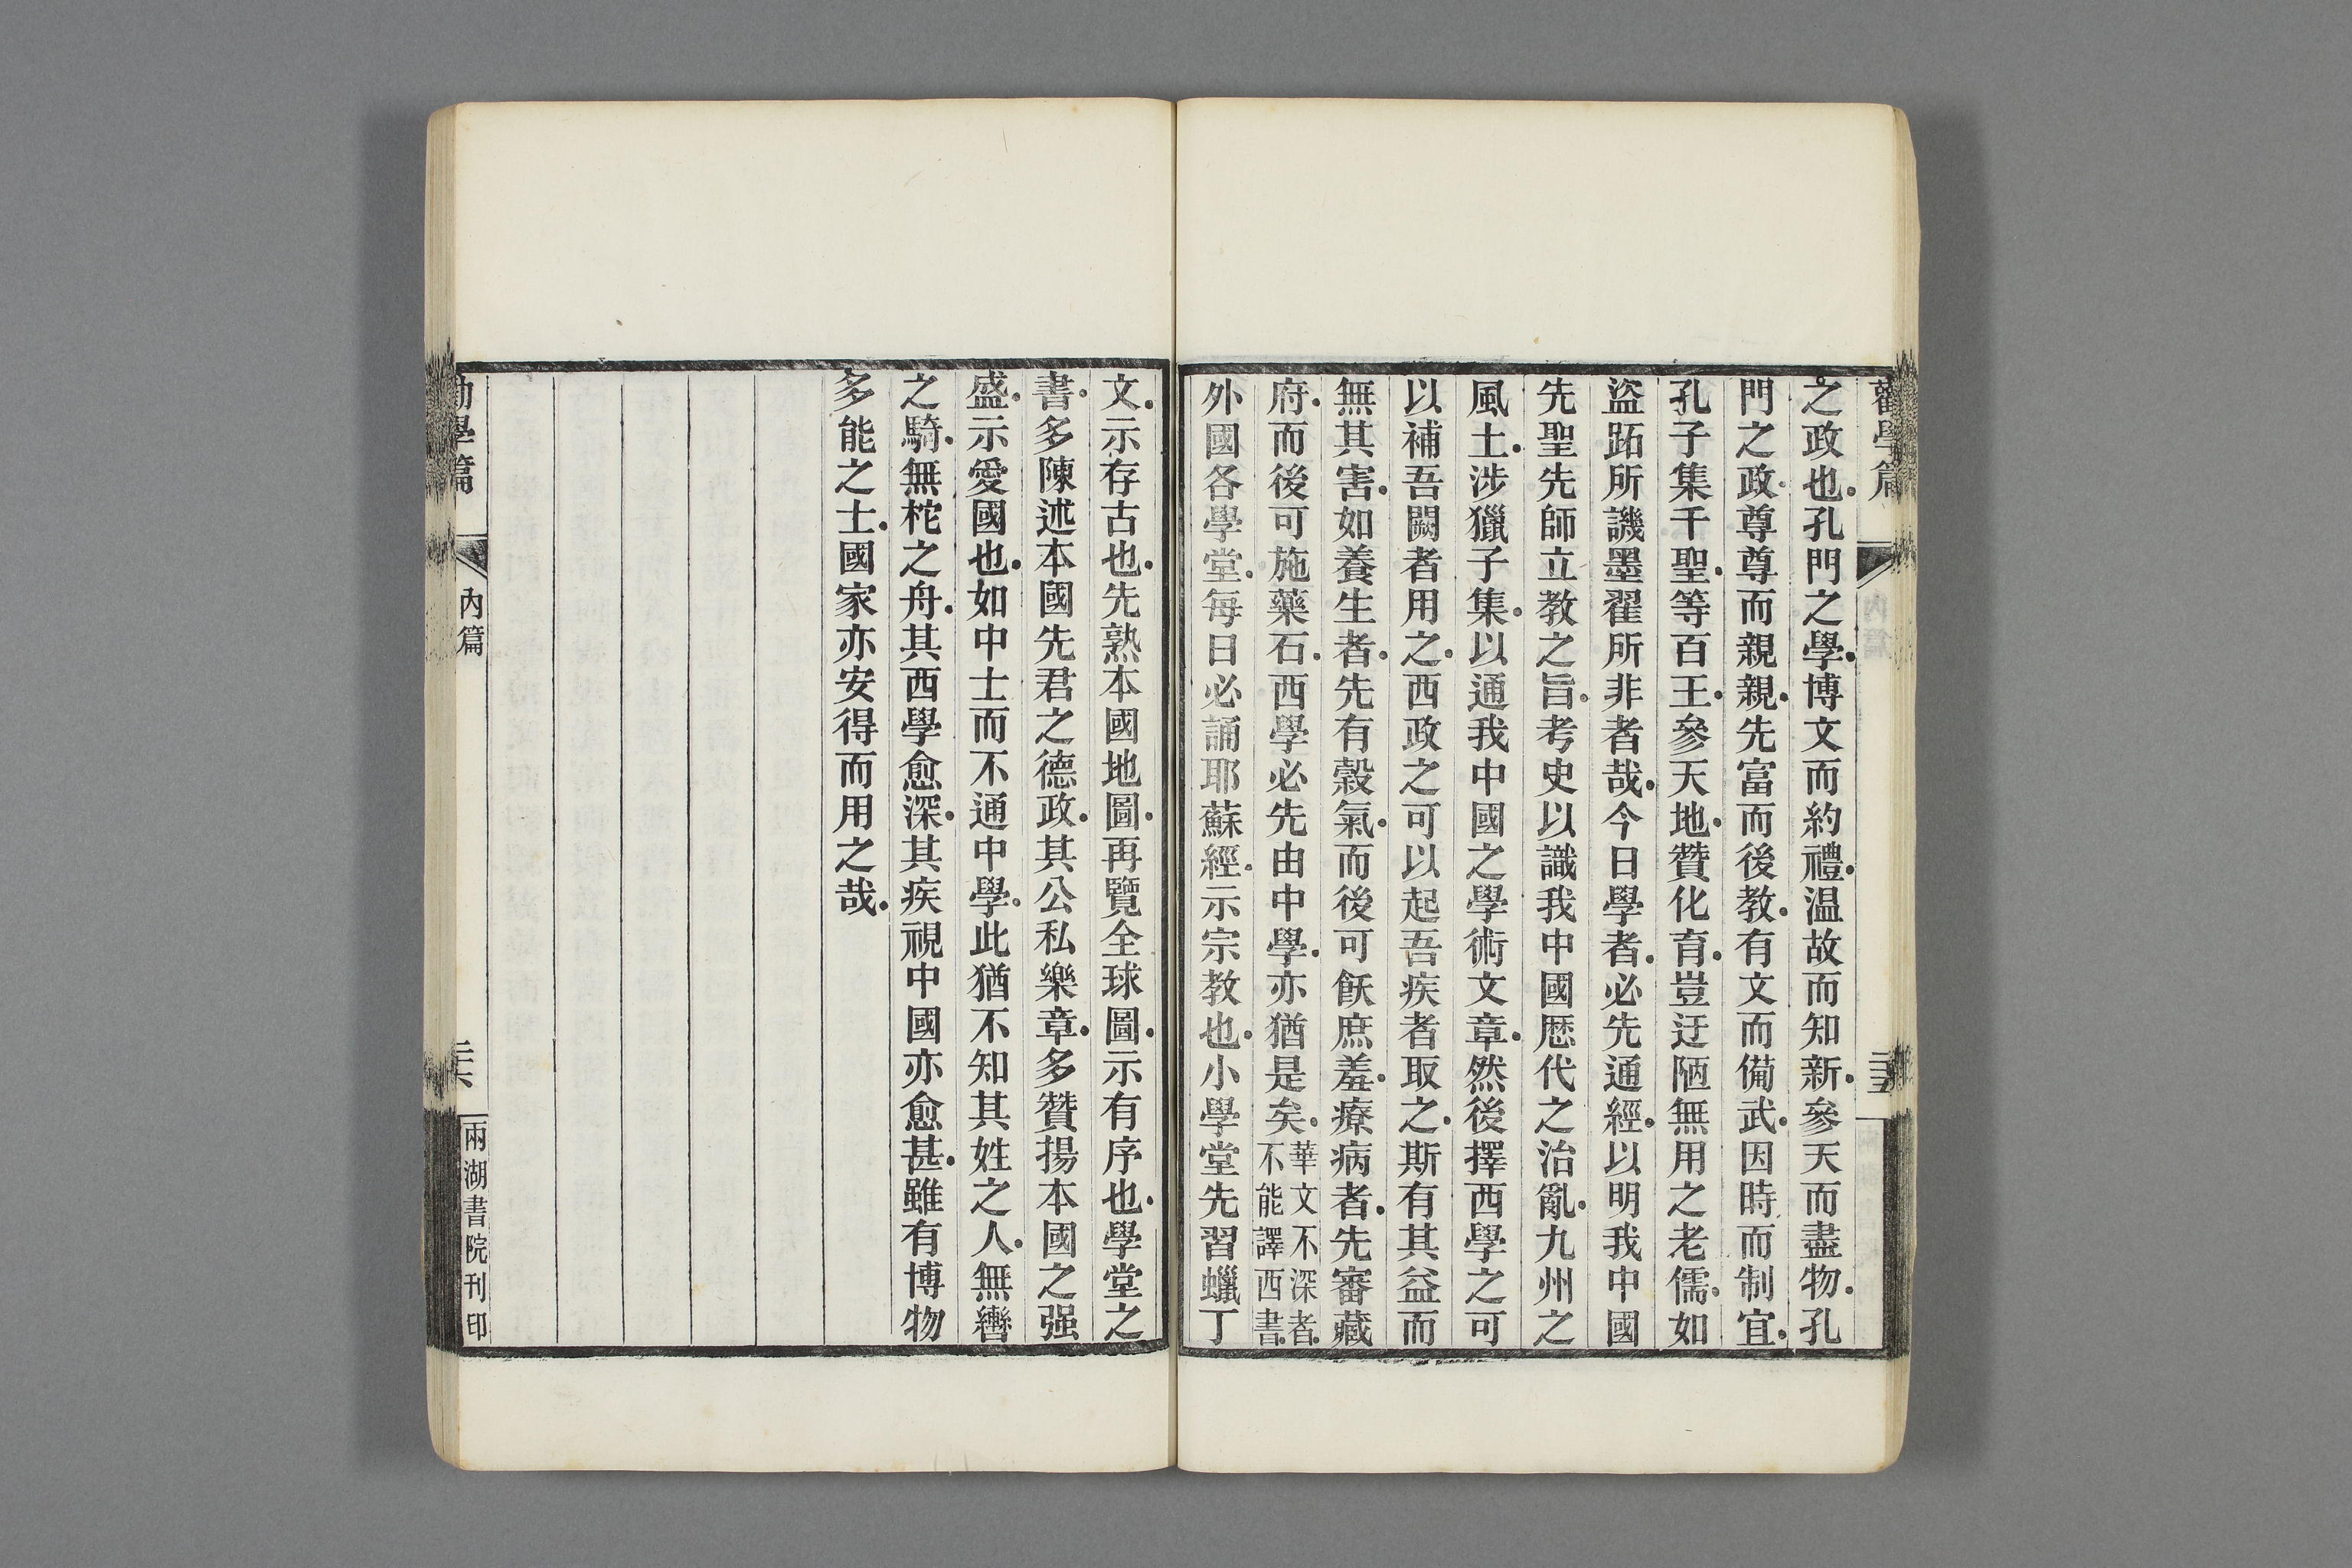 勸學篇
二十五
之政也孔門之學博文而約禮温故而知新參天而盡物孔
門之政尊尊而親親先富而後教有文而備武因時而制宜
孔子集千聖等百王參天地贊化育豈迂陋無用之老儒如
盜跖所譏墨翟所非者哉今日學者必先通經以明我中國
先聖先師立教之旨考史以識我中國歷代之治亂九州之
風土涉獵子集以通我中國之學術文章然後擇西學之可
以補吾闕者用之西政之可以起吾疾者取之斯有其益而
無其害如養生者先有穀氣而後可飫庶羞療病者先審藏
府而後可施藥石西學必先由中學亦猶是矣華文不深者
不能譯西書
外國各學堂每日必誦耶蘇經示宗教也小學堂先習蠟丁
文示存古也先熟本國地圖再覽全球圖示有序也學堂之
書多陳述本國先君之德政其公私樂章多贊揚本國之强
盛示愛國也如中士而不通中學此猶不知其姓之人無轡
之騎無柁之舟其西學愈深其疾視中國亦愈甚雖有博物
多能之士國家亦安得而用之哉
勸學篇
內篇
二十六
兩湖書院刊印